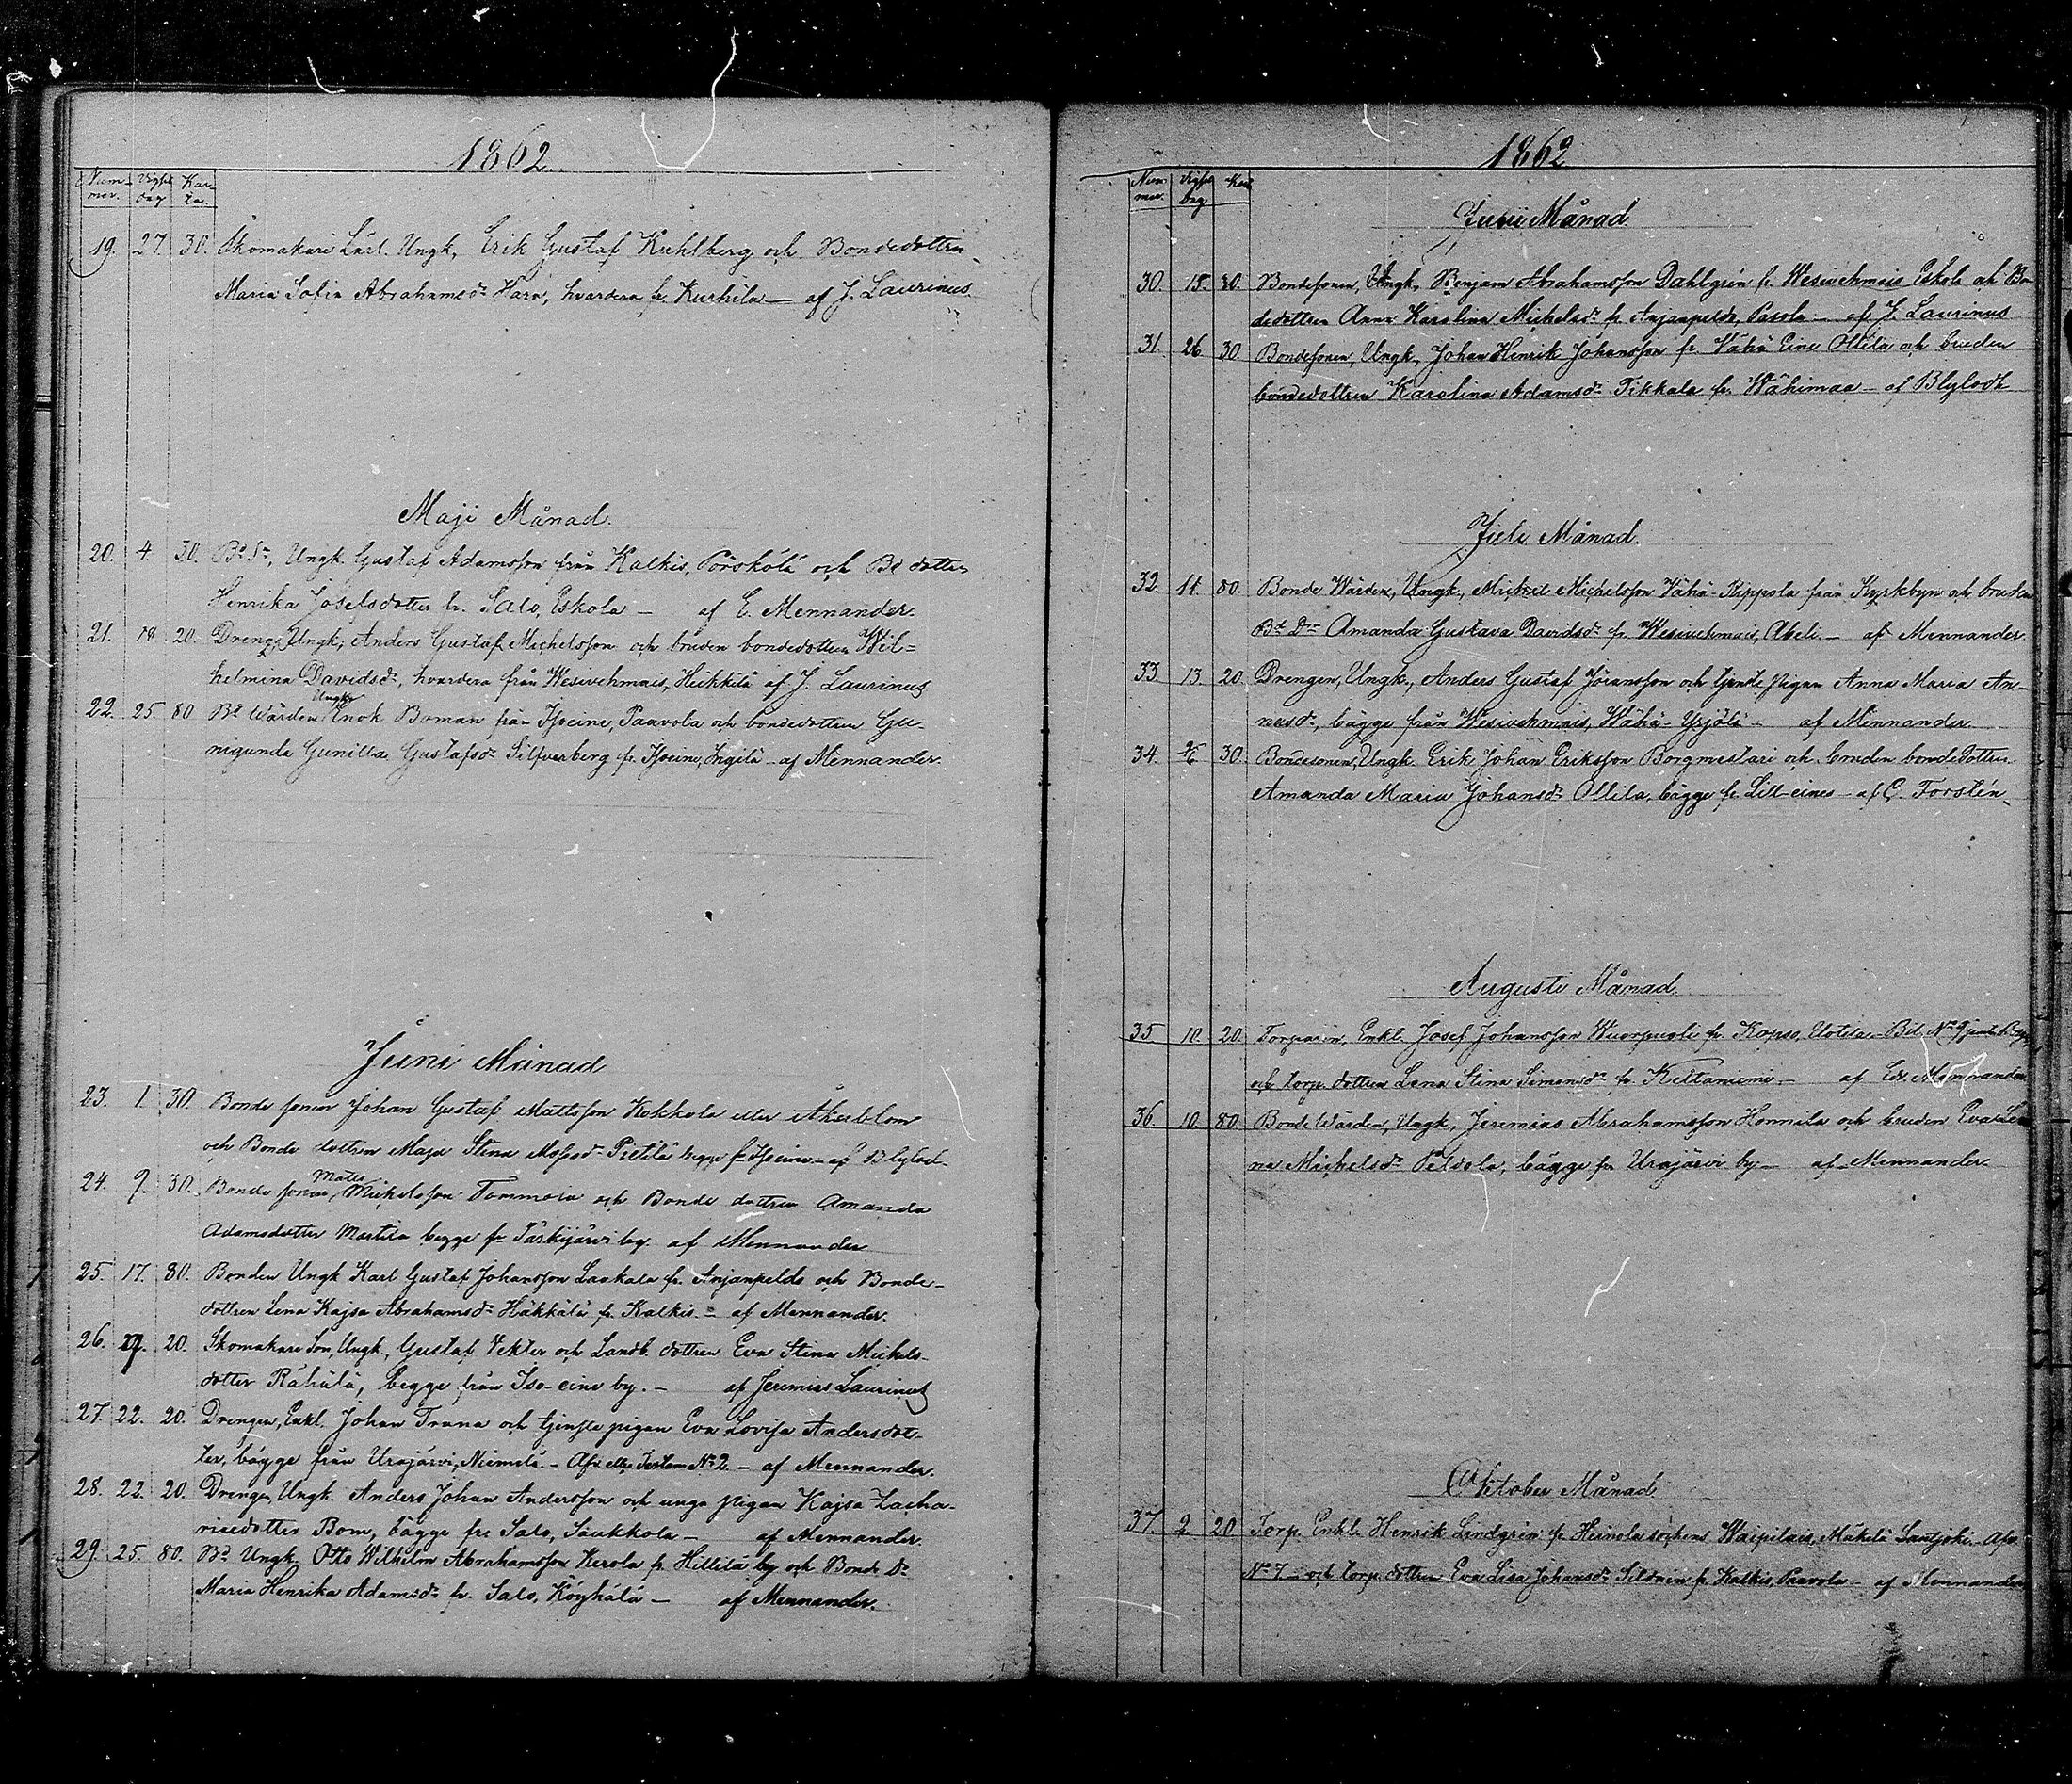 1862.
Num-
mer.
Vigsel
dag
Kas-
sa.
19. 27. 30. Skomakare Lärl. Ungk, Erik Gustaf Kuhlberg och Bondedottren
Maria Sofia Abrahamsdr Harn, hvardera fr. Kurhila — af J. Laurinus.
Maji Månad.
20. 4. 30. Bd Sn, Ungk. Gustaf Adamsson från Kalkis, Pörskölä och Bd dotter
Henrika Josefsdotter fr. Salo, Eskola — af E. Mennander.
21. 18. 20. Dreng, Ungk, Anders Gustaf Michelsson och bruden bondedottren Wil=
helmina Davidsdr, hvardera från Wesivehmais, Heikkilä af J. Laurinus
Ungk
22. 25. 80 Bd Wärden Enok Boman från Isoeine, Paavola och bondedottren Gu-
nigunda Gunilla Gustafsdr Silfverberg fr. Isoeine, Ingilä — af Mennander.
Juni Månad
23. 1. 30. Bonde sonen Johan Gustaf Mattsson Kokkola eller Åkerblom
och Bonde dottren Maja Stina Mosesdr Pietilä begge fr Isoeine — af Blyloch
Matts
24. 9. 30. Bonde sonen, Michelsson Tommola och Bonde dottren Amanda
Adamsdotter Martila begge fr Särkijärvi by. af Mennander
25. 17. 80. Bonden Ungk Karl Gustaf Johansson Laukala fr. Anjanpeldo och Bonde-
dottren Lena Kajsa Abrahamsdr Häkkälä fr. Kalkis. — af Mennander.
26. 20. Skomakare Son, Ungk, Gustaf Vekter och Landb. dottren Eva Stina Michels-
dotter Rähälä, begge från Iso-eine by. — af Jeremias Laurinus
27. 22. 20. Drengen, Enkl. Johan Trana och tjenste pigan Eva Lovisa Andersdot-
ter, bägge från Urajärvi, Niemelä. — Afv. ell. Testam No 2. — af Mennander.
28. 22. 20. Drengen, Ungk. Anders Johan Andersson och unga pigan Kajsa Zacha-
riaedotter Bom, bägge frn Salo, Saukkola — af Mennander.
29. 25. 80. Bd Ungk. Otto Wilhelm Abrahamsson Kerola fr. Hillilä by och Bonde Dr
Maria Henrika Adamsdr fr. Salo, Köykälä — af Mennander.
1862
Num
mer.
Vigsel
dag
Kas
Junii Månad.
30. 18. 30. Bondesonen, Ungk, Benjam Abrahamsson Dahlgrén fr. Wesivehmais Eskola och Bon
dedottren Anna Karolina Michelsdr fr. Anjanpeldo, Pasola — af J. Laurinus
31. 26. 30. Bondesonen, Ungk, Johan Henrik Johansson fr. Vähä Eine Ollila och bruden
bondedottren Karolina Adamsdr Tikkala fr. Wähimaa — af Blyloch
Juli Månad.
32. 11. 80. Bonde Wärden, Ungk, Mickel Michelsson Vähä-Kippola från Kyrkbyn och bruden
Bd Dr Amanda Gustava Davidsdr fr. Wesivehmais, Abeli — af Mennander.
33. 13. 20. Drengen, Ungk., Anders Gustaf Jöransson och tjenste pigan Anna Maria An-
nasdr, bägge från Wesivehmais, Wähä-Yrjölä — af Mennander
34. 30. Bondesonen, Ungk. Erik Johan Eriksson Borgmestari och bruden bondedottren
Amanda Maria Johansdr Ollila, bägge fr. Lill-eines — af C. Forstén
Augusti Månad.
35. 10. 20. Torparen, Enkl. Josef Johansson Wuorpuoli fr. Kopso, Utotila — Bil. No 9
och torp. dottren Lena Stina Simonsdr fr. Keltaniemi — af Ed. Mennander
36. 10. 80 Bonde Wärden, Ungk, Jeremias Abrahamsson Honnila och bruden Eva Le
na Michelsdr Peldola, bägge fr Urajärvi by — af Mennander.
Oktober Månad.
37. 2. 20 Torp. Enkl. Henrik Lindgrén fr. Heinola sockens Waipilais, Mäkelä Santjoki. — Afv.
No 7 — och torp. dottren Eva Lisa Johansdr Sildnin fr. Kalkis, Paavola — af Mennander